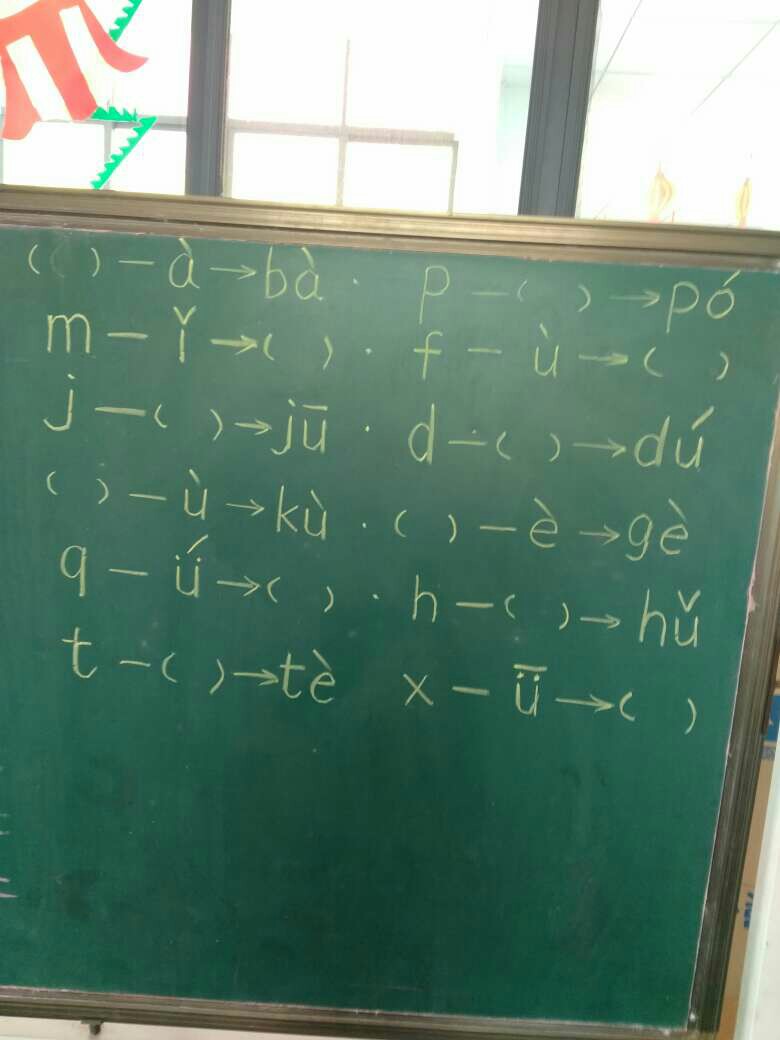 ( ) — à → bà · p — ( ) → pó
m — ǐ → ( ) · f — ù → ( )
j — ( ) → jū · d — ( ) → dú
( ) — ù → kù · ( ) — è → gè
q — ǘ → ( ) · h — ( ) → hǔ
t — ( ) → tè x — ǖ → ( )